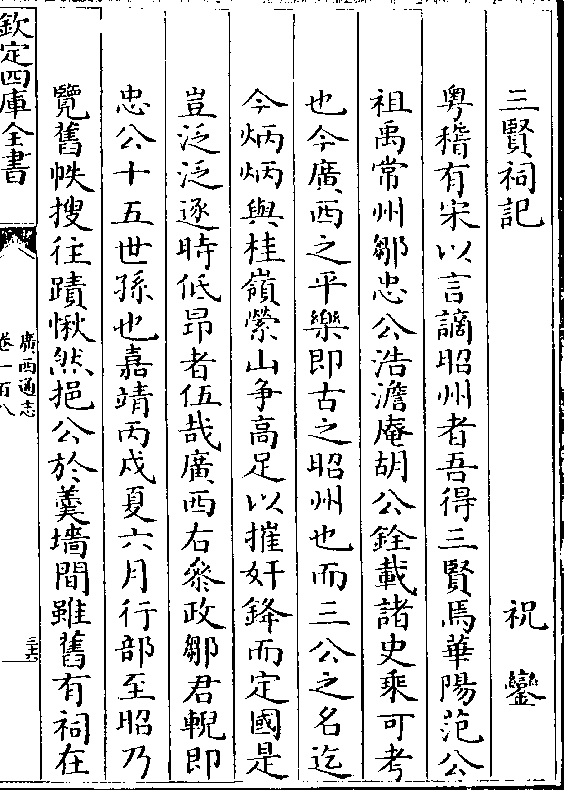 三賢祠記　祝鑾
粤稽有宋以言謫昭州者吾得三賢焉華陽范公
祖禹常州鄒忠公浩澹庵胡公銓載諸史乘可考
也今廣西之平樂即古之昭州也而三公之名迄
今炳炳與桂嶺縈山争高足以摧奸鋒而定國是
豈泛泛逐時低昻者伍哉廣西右叅政鄒君輗即
忠公十五世孫也嘉靖丙戍夏六月行部至昭乃
覽舊帙搜往蹟愀然挹公於羹墻間雖舊有祠在
欽定四庫全書
廣西通志
卷一百八
三六